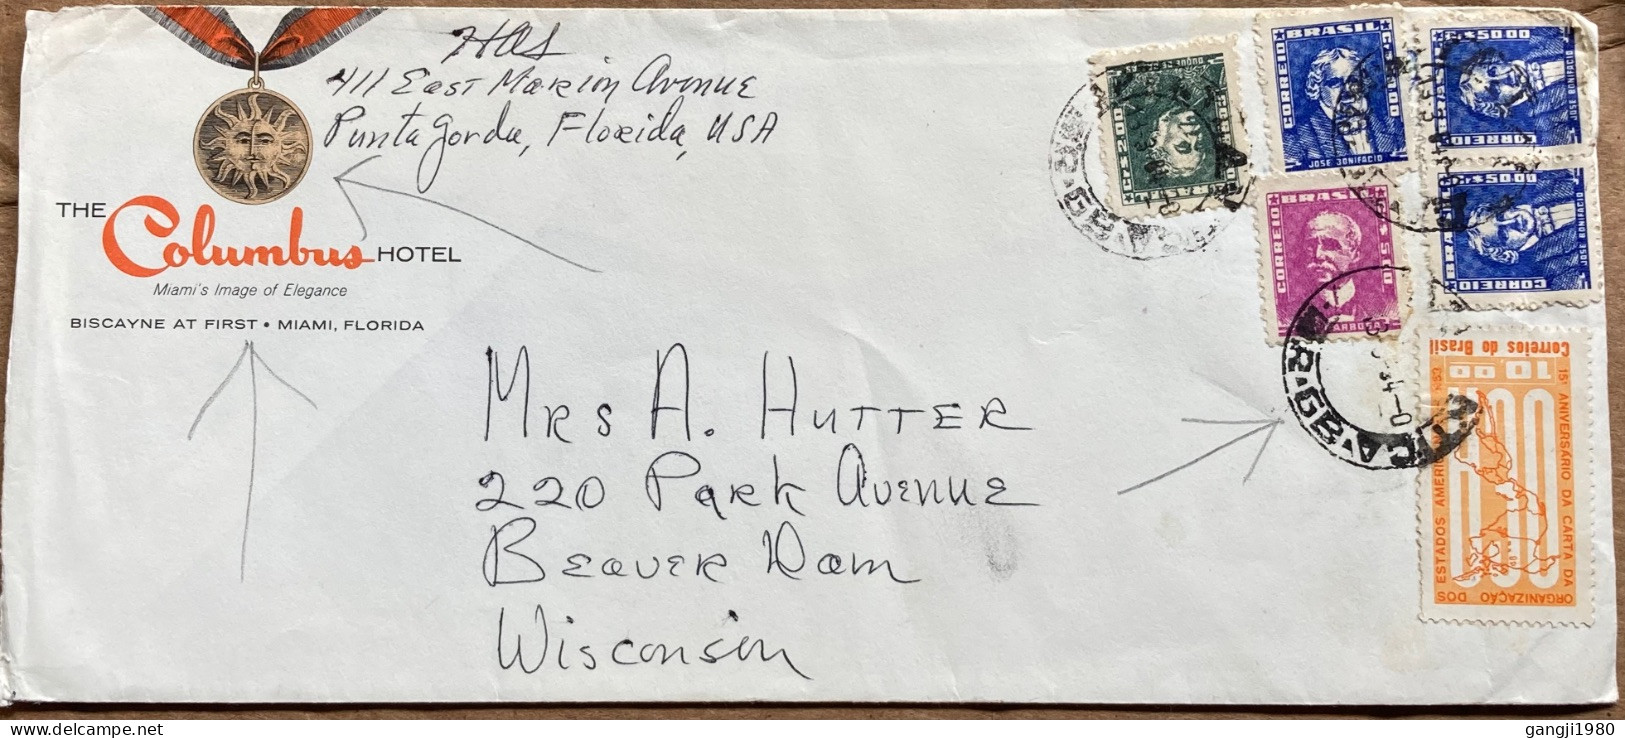 HAS
411 East Marion Avenue
Punta Gorda, Florida, USA
THE
Columbus HOTEL
Miami's Image of Elegance
BISCAYNE AT FIRST • MIAMI, FLORIDA
MRS A. HUTTER
220 Park AVENUE
BEAVER Dam
Wisconsin
BRASIL
CORREIO
JOSE BONIFACIO
Cr$50.00
CORREIO
JOSE BONIFACIO
Cr$50.00
BRASIL
CORREIO
JOSE BONIFACIO
BRASIL
CORREIO
Correios do Brasil
10,00
15º ANIVERSÁRIO DA CARTA DA
ORGANIZAÇÃO DOS
ESTADOS AMERICANOS
gangji1980